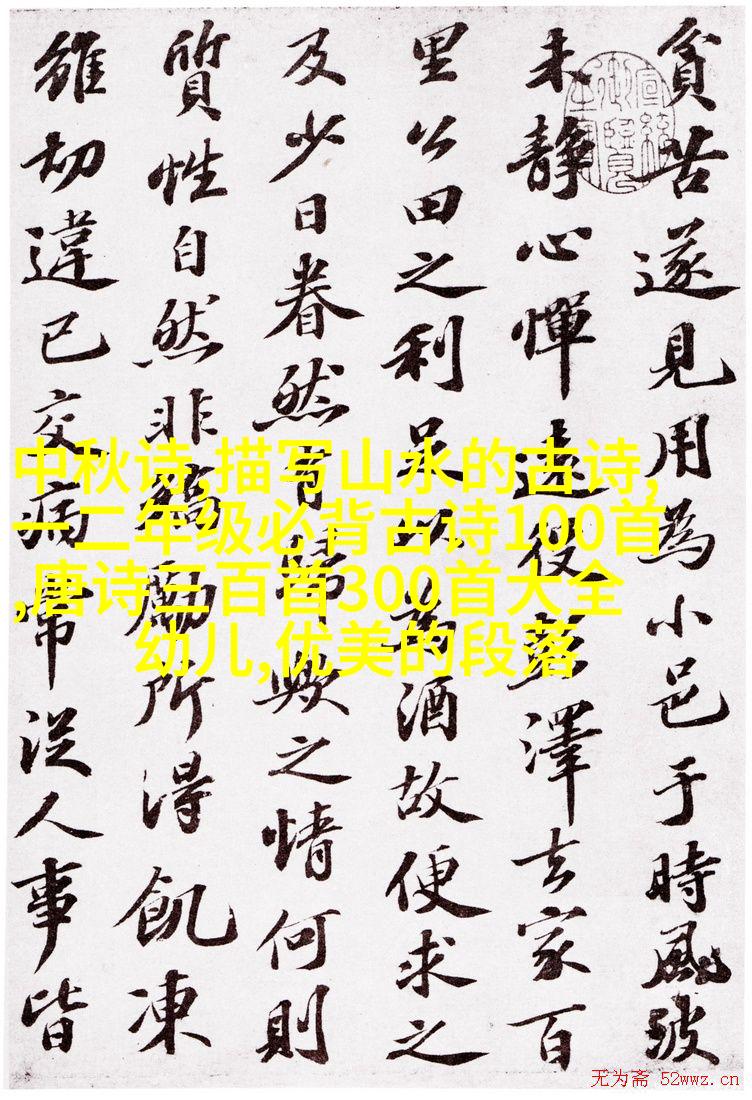 貧苦遂見用為小邑于時風波
未静心憚遠役彭澤去家百
里公田之利足以為酒故便求之
及少日眷然有歸歟之情何則
質性自然非矯勵所得飢凍
雖切違己交病常從人事皆
中秋诗,描写山水的古诗,
一二年级必背古诗100首
,唐诗三百首300首大全
幼儿,优美的段落
无为斋 52wwz.cn